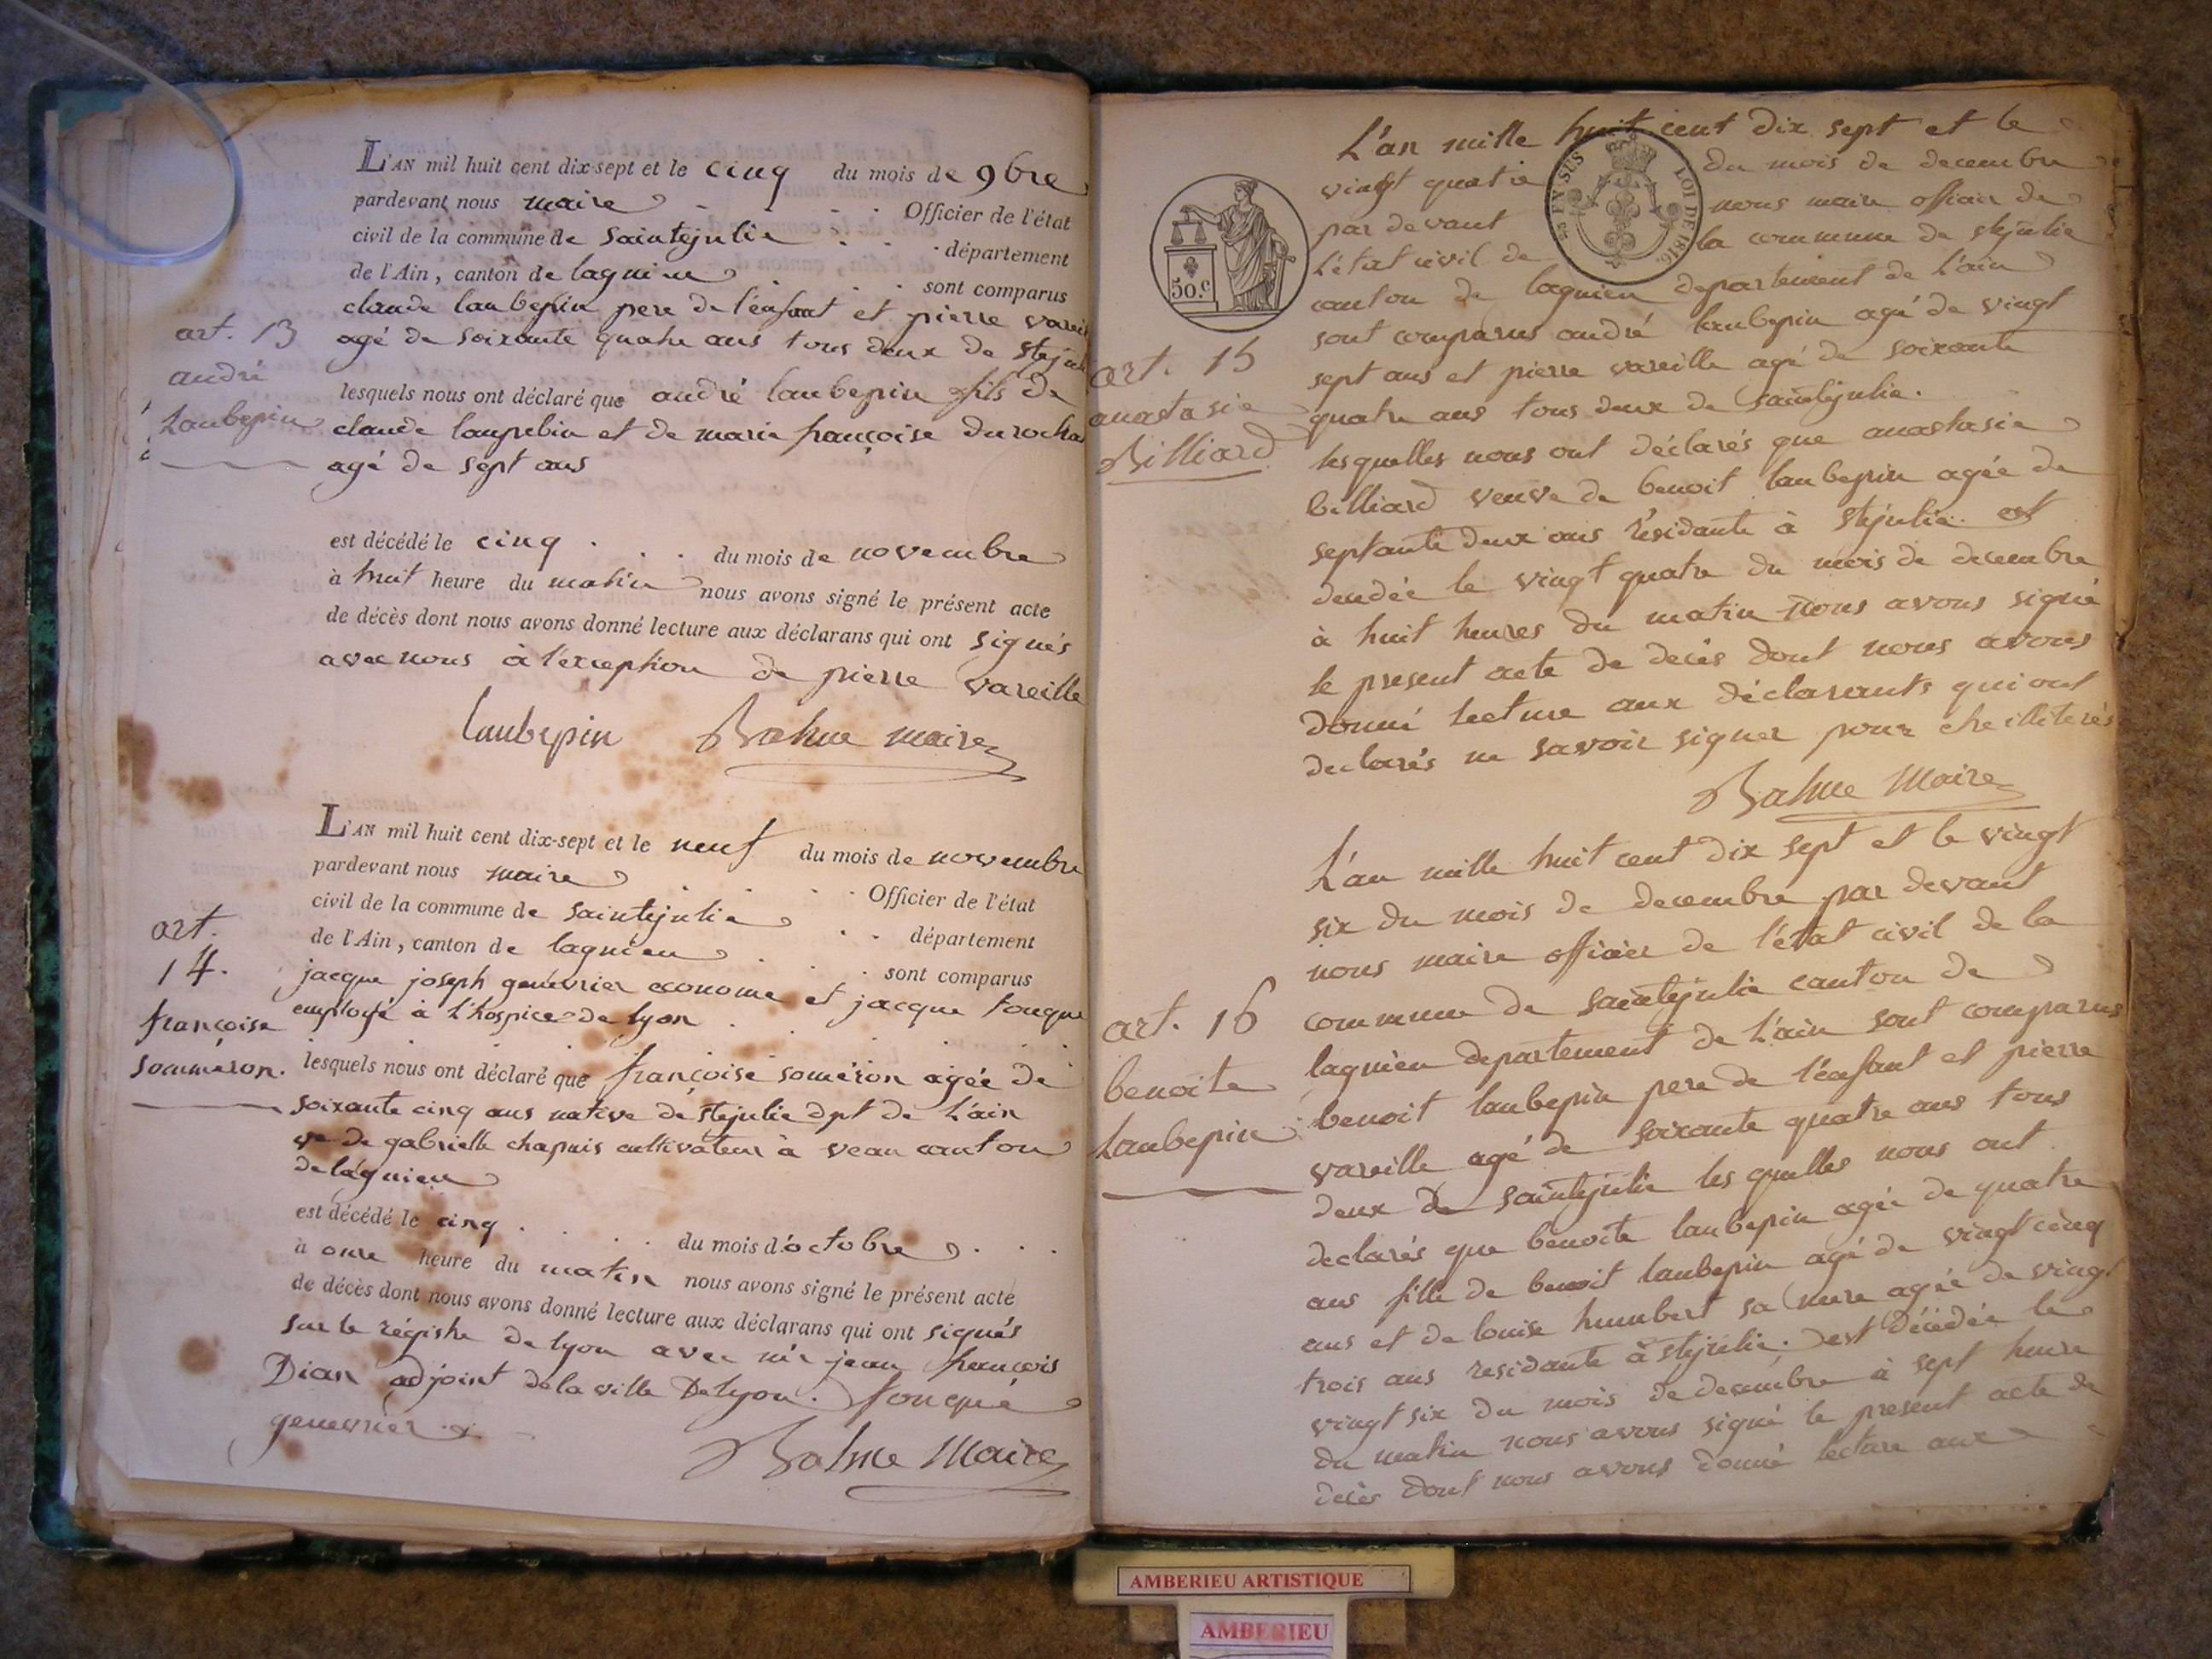 L'AN mil huit cent dix-sept et le cinq du mois de 9bre
pardevant nous maire Officier de l'état
civil de la commune de saintejulie département
de l'Ain, canton de lagnieu sont comparus
claude laubepin pere de l'enfant et pierre vareil
art. 13 agé de soixante quatre ans tous deux de stejulie
andré
lesquels nous ont déclaré que andré laubepin fils de
Laubepin claude laupebin et de marie françoise durochat
agé de sept ans
est décédé le cinq du mois de novembre
à huit heure du matin nous avons signé le présent acte
de décès dont nous avons donné lecture aux déclarans qui ont signés
avec nous à l'exception de pierre vareille
laubepin Balme maire
L'AN mil huit cent dix-sept et le neuf du mois de novembre
pardevant nous maire Officier de l'état
civil de la commune de saintejulie département
art. de l'Ain, canton de lagnieu sont comparus
14. jacque joseph genevrier econome et jacque fouque
françoise employé à l'hospice de lyon
sommeron. lesquels nous ont déclaré que françoise someron agée de
soixante cinq ans native de stejulie dpt de L'ain
ve de gabrielle chapuis cultivateur à veau canton
de lagnieu
est décédé le cinq du mois d'octobre
à onze heure du matin nous avons signé le présent acte
de décès dont nous avons donné lecture aux déclarans qui ont signés
sur le régistre de lyon avec mr jean francois
Dian adjoint de la ville De lyon. fouqué
genevrier.
Balme Maire
L'an mille huit cent dix sept et le
vingt quatre du mois de decembre
par devant nous maire officier de
L'état civil de la commune de stejulie
canton de lagnieu departement de L'ain
sont comparus andré laubepin agé de vingt
sept ans et pierre vareille agé de soixante
quatre ans tous deux de saintejulie.
3s EN SUS LOI DE 1816.
50.c
art. 15
anastasie
Billiard
lesquelles nous ont déclarés que anastasie
billiard veuve de benoit laubepin agée de
septante deux ans résidante à stejulie est
decedée le vingt quatre du mois de decembre
à huit heures du matin nous avons signé
le present acte de decès dont nous avons
donné lecture aux déclarants qui ont
declarés ne savoir signer pour etre illiterés
Balme Maire
L'an mille huit cent dix sept et le vingt
six du mois de decembre par devant
nous maire officier de l'état civil de la
commune de saintejulie canton de
lagnieu departement de L'ain sont comparus
benoit laubepin pere de l'enfant et pierre
vareille agé de soixante quatre ans tous
deux de saintejulie les quelles nous ont
art. 16
benoite
Laubepin
declarés que benoite laubepin agée de quatre
ans fille de benoit laubepin agé de vingt cinq
ans et de louise humbert sa mere agée de vingt
trois ans residante à stejulie, est décédée le
vingt six du mois de decembre à sept heure
du matin nous avons signé le present acte de
decès dont nous avons donné lecture aux
AMBERIEU ARTISTIQUE
AMBERIEU